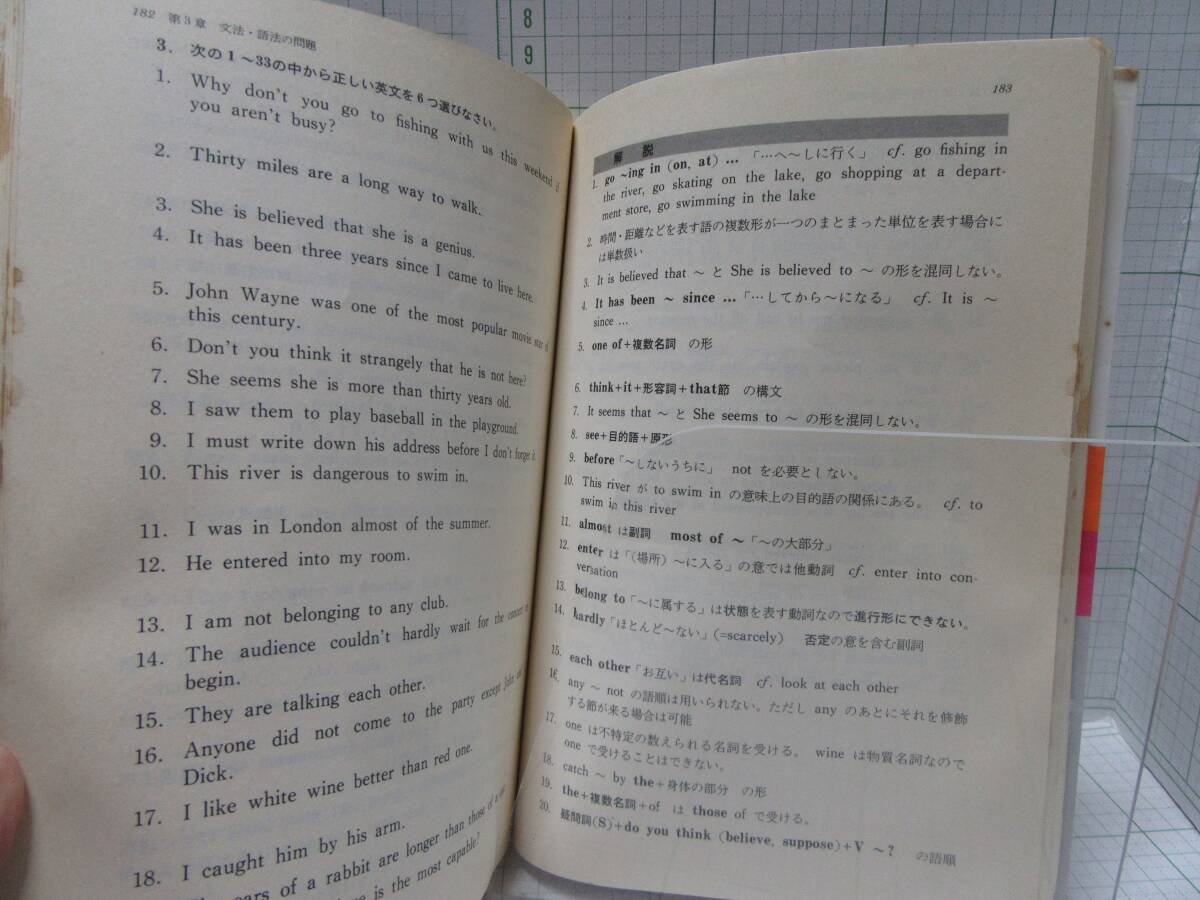 8
9
182 第3章 文法・語法の問題
3. 次の1～33の中から正しい英文を6つ選びなさい。
1. Why don't you go to fishing with us this weekend if
you aren't busy?
2. Thirty miles are a long way to walk.
3. She is believed that she is a genius.
4. It has been three years since I came to live here.
5. John Wayne was one of the most popular movie star of
this century.
6. Don't you think it strangely that he is not here?
7. She seems she is more than thirty years old.
8. I saw them to play baseball in the playground.
9. I must write down his address before I don't forget it.
10. This river is dangerous to swim in.
11. I was in London almost of the summer.
12. He entered into my room.
13. I am not belonging to any club.
14. The audience couldn't hardly wait for the concert to
begin.
15. They are talking each other.
16. Anyone did not come to the party except John and
Dick.
17. I like white wine better than red one.
18. I caught him by his arm.
ears of a rabbit are longer than those of a
is the most capable?
183
解説
1. go ~ing in (on, at) … 「…へ～しに行く」 cf. go fishing in
the river, go skating on the lake, go shopping at a depart-
ment store, go swimming in the lake
2. 時間・距離などを表す語の複数形が一つのまとまった単位を表す場合に
は単数扱い
3. It is believed that ～ と She is believed to ～ の形を混同しない。
4. It has been ～ since …「…してから～になる」 cf. It is ～
since …
5. one of+複数名詞 の形
6. think+it+形容詞+that節 の構文
7. It seems that ～ と She seems to ～ の形を混同しない。
8. see+目的語+原形
9. before「～しないうちに」 not を必要としない。
10. This river が to swim in の意味上の目的語の関係にある。 cf. to
swim in this river
11. almost は副詞 most of ～「～の大部分」
12. enter は「(場所)～に入る」の意では他動詞 cf. enter into con-
versation
13. belong to「～に属する」は状態を表す動詞なので進行形にできない。
14. hardly「ほとんど～ない」(=scarcely) 否定の意を含む副詞
15. each other「お互い」は代名詞 cf. look at each other
16. any ～ not の語順は用いられない。ただし any のあとにそれを修飾
する節が来る場合は可能
17. one は不特定の数えられる名詞を受ける。 wine は物質名詞なので
one で受けることはできない。
18. catch ～ by the+身体の部分 の形
19. the+複数名詞+of は those of で受ける。
20. 疑問詞(S)+do you think (believe, suppose)+V ～? の語順